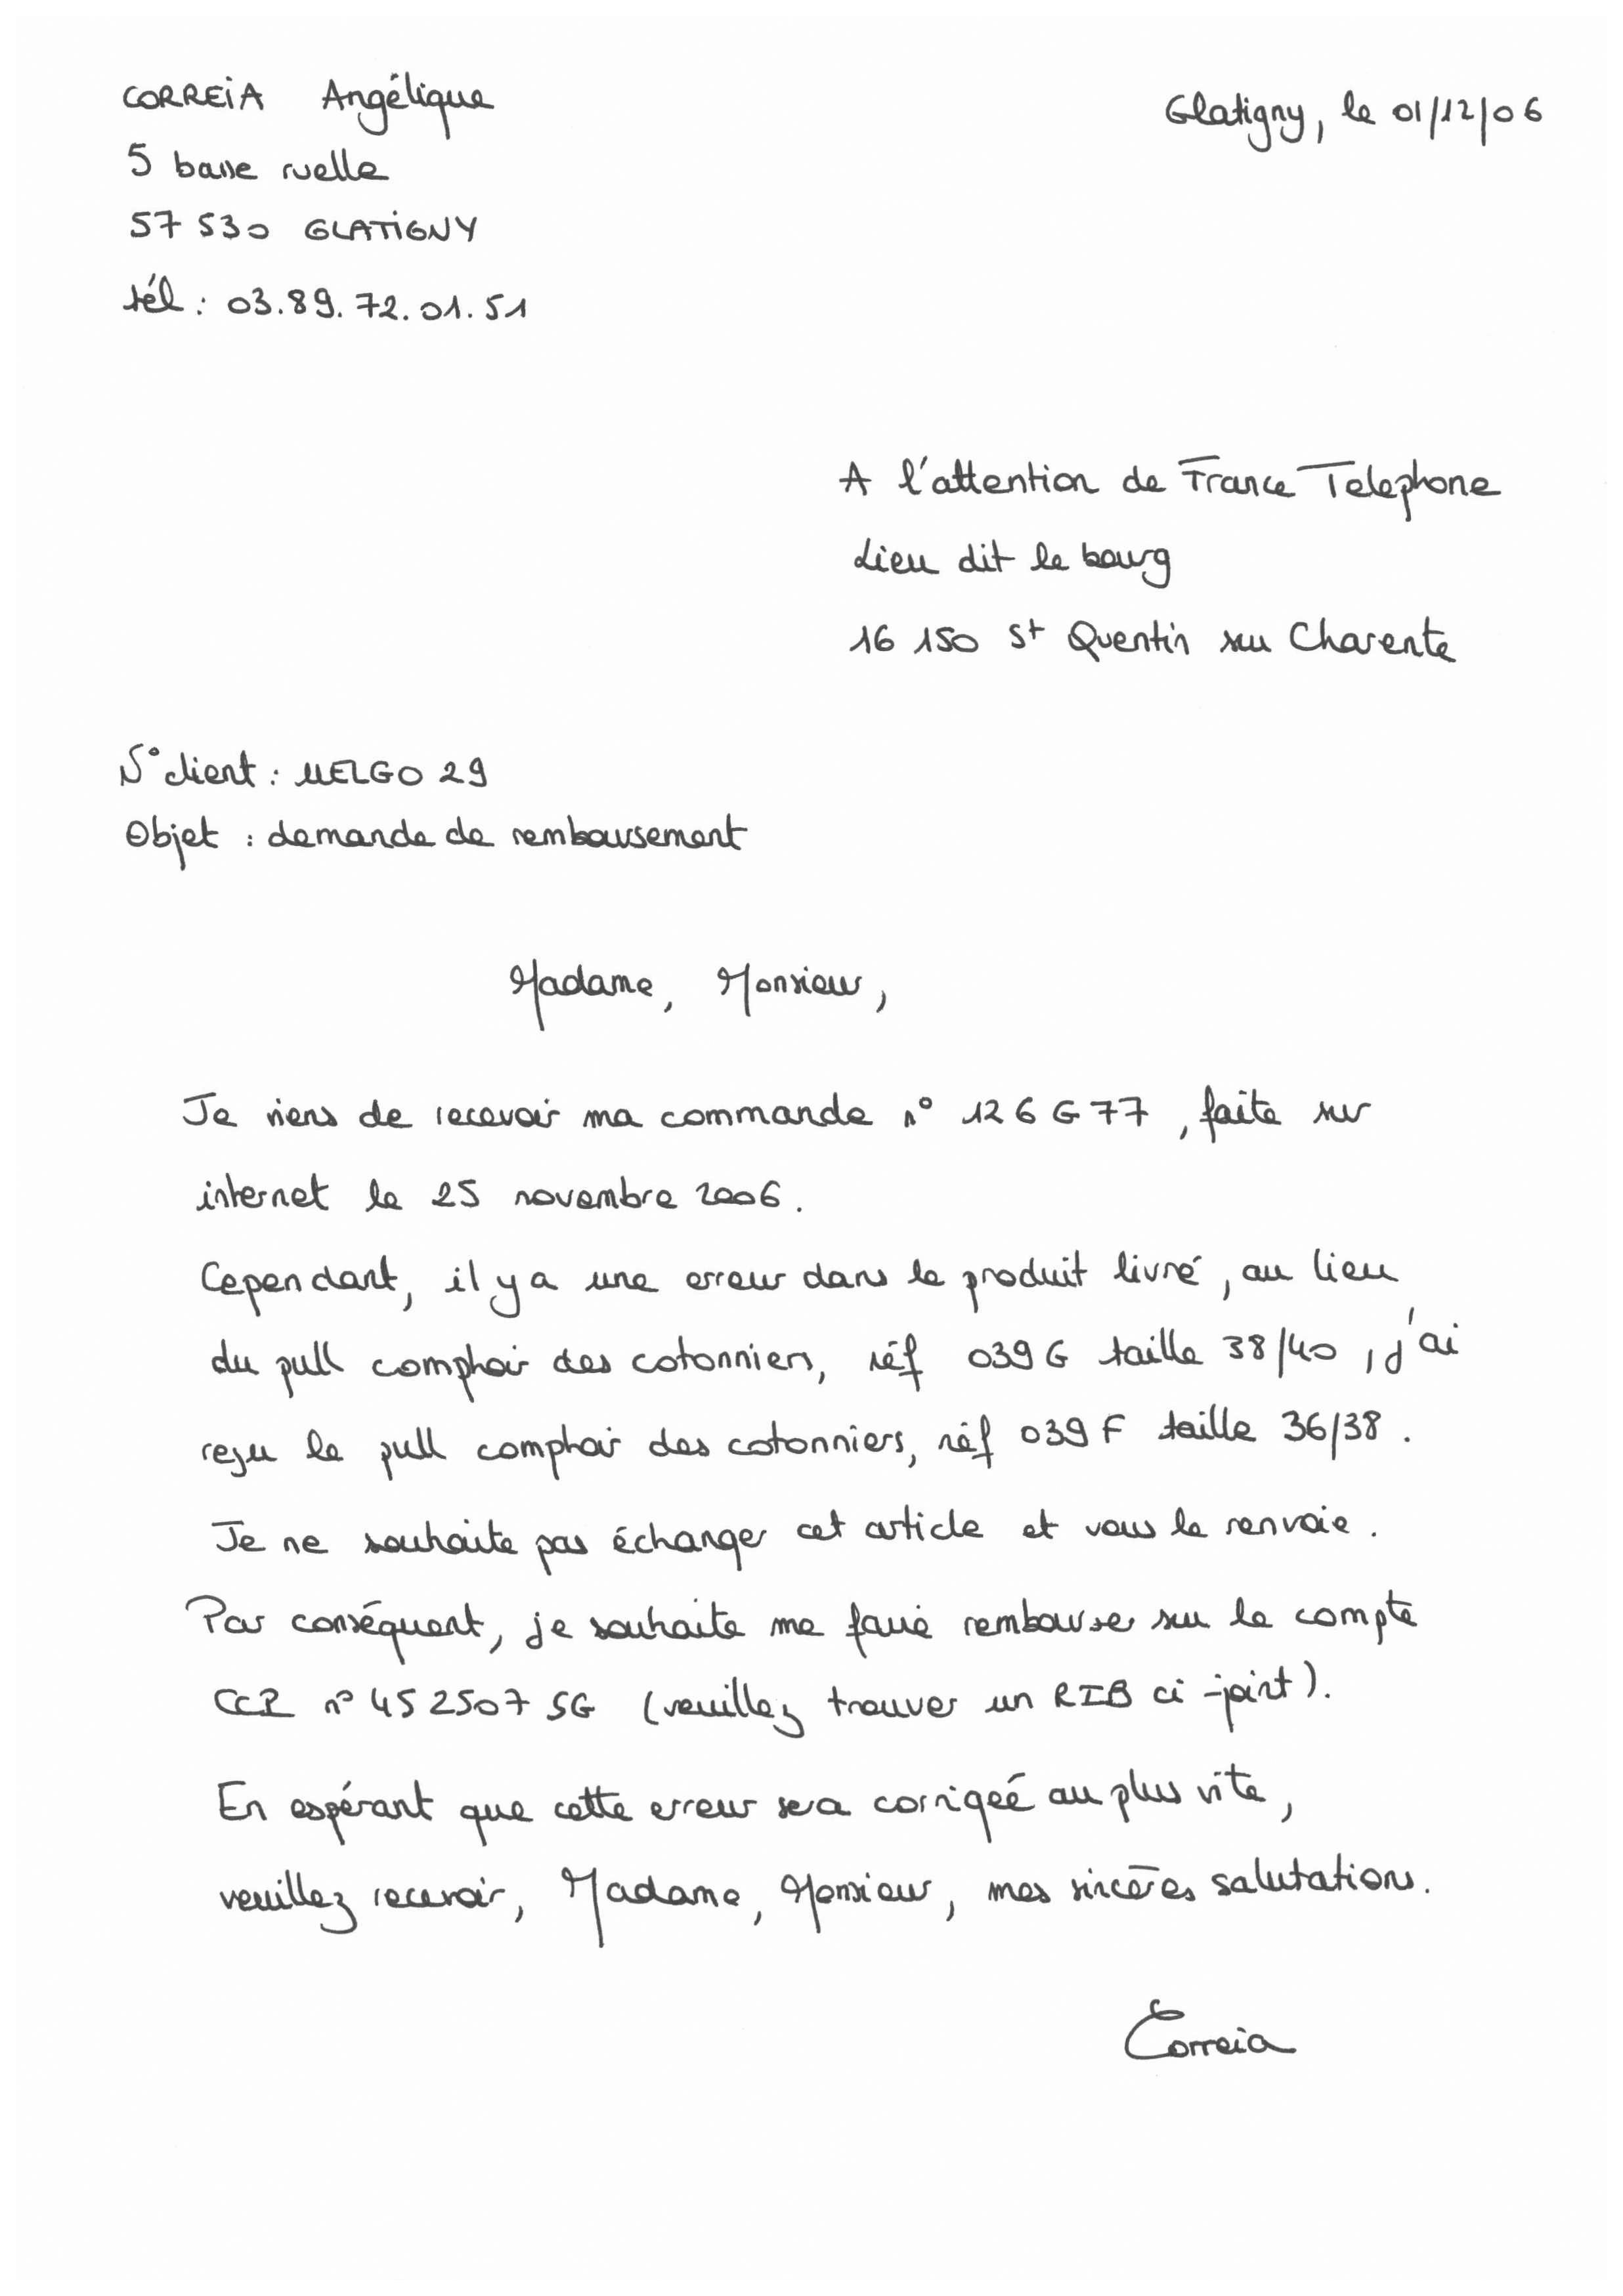 CORREIA Angélique
Glatigny, le 01/12/06
5 basse ruelle
57 530 GLATIGNY
tél : 03.89.72.01.51
A l'attention de France Telephone
Lieu dit le bourg
16 150 St Quentin sur Charente
N° client : MELGO 29
Objet : demande de remboursement
Madame, Monsieur,
Je viens de recevoir ma commande n° 126 G 77, faite sur
internet le 25 novembre 2006.
Cependant, il y a une erreur dans le produit livré, au lieu
du pull comptoir des cotonniers, réf 039 G taille 38/40, j'ai
reçu le pull comptoir des cotonniers, réf 039 F taille 36/38.
Je ne souhaite pas échanger cet article et vous le renvoie.
Par conséquent, je souhaite me faire rembourser sur le compte
CCP n° 45 2507 SG (veuillez trouver un RIB ci-joint).
En espérant que cette erreur sera corrigeé au plus vite,
veuillez recevoir, Madame, Monsieur, mes sincères salutations.
Correia